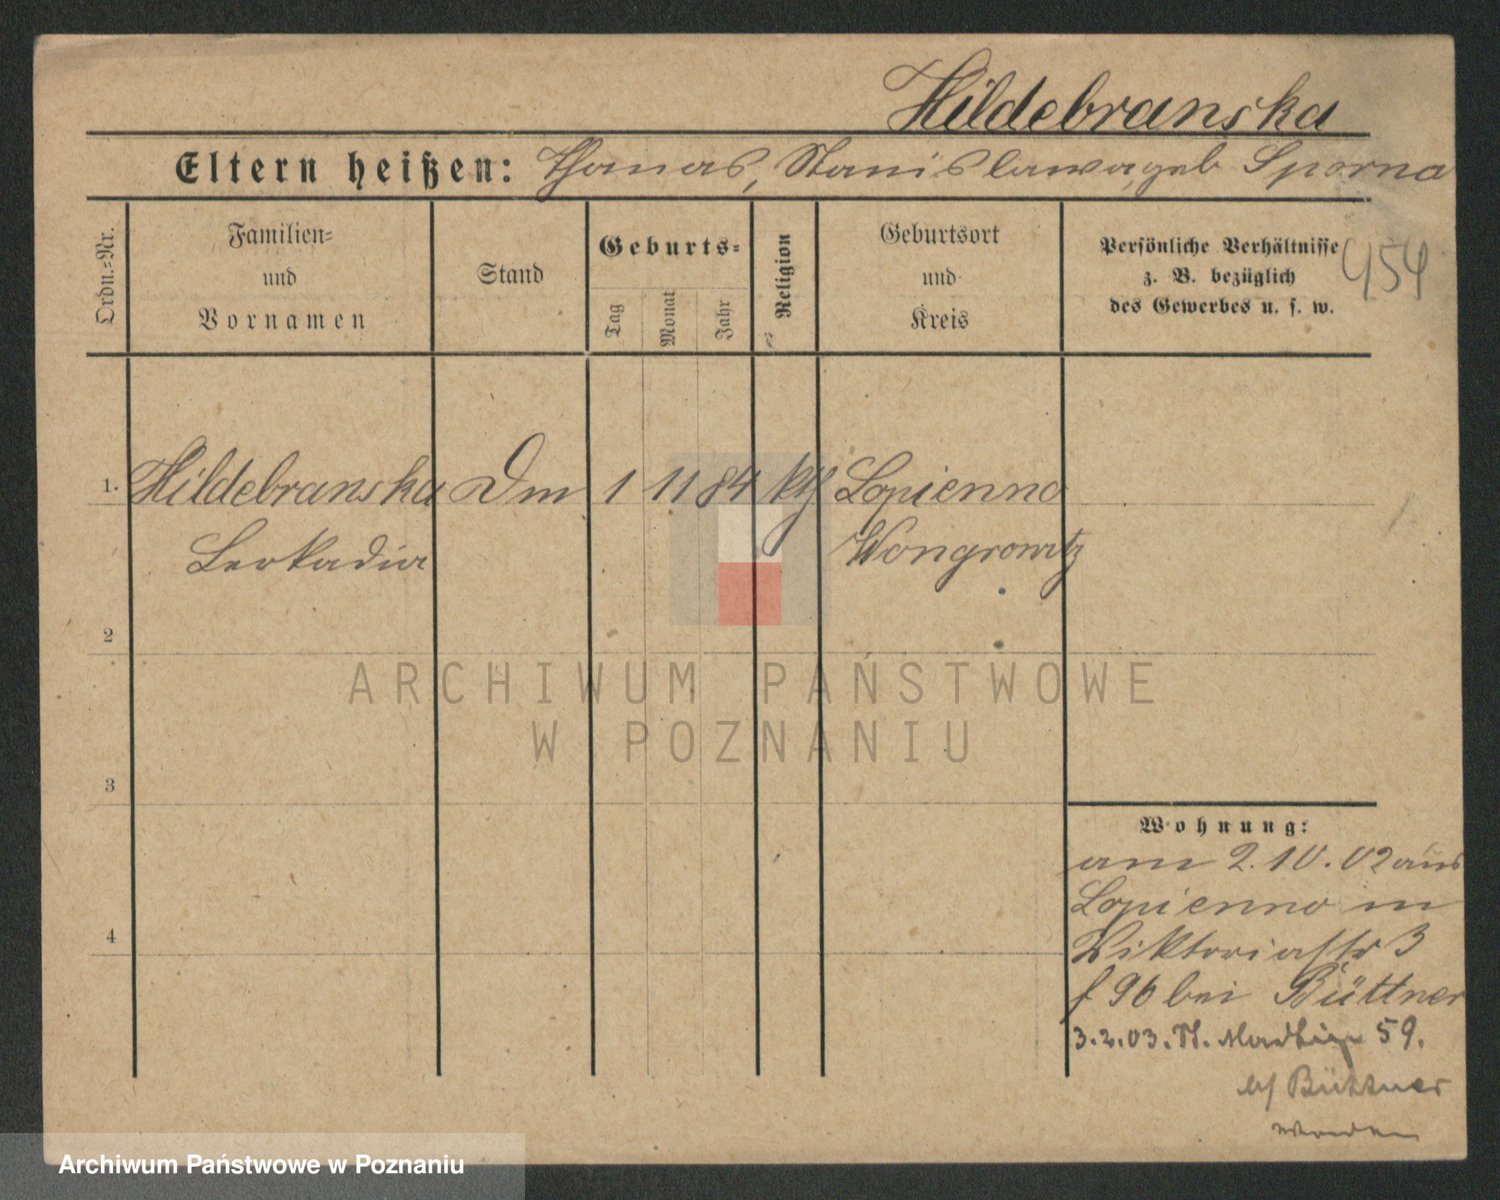 Hildebranska
Eltern heißen: Thomas, Stanislawa, geb Sporna
Ordn.=Nr.
Familien=
und
Vornamen
Stand
Geburts=
Tag
Monat
Jahr
Religion
Geburtsort
und
Kreis
Persönliche Verhältnisse
z. B. bezüglich
des Gewerbes u. s. w.
454
1. Hildebranska Dm 1 11 84 kth Lopienno
Leokadia Wongrowitz
2
3
4
ARCHIWUM PAŃSTWOWE
W POZNANIU
Wohnung:
am 2.10.02 aus
Lopienno in
Viktoriastr 3
f 96 bei Büttner
3.2.03. St. Martin 59.
bei Büttner
Archiwum Państwowe w Poznaniu